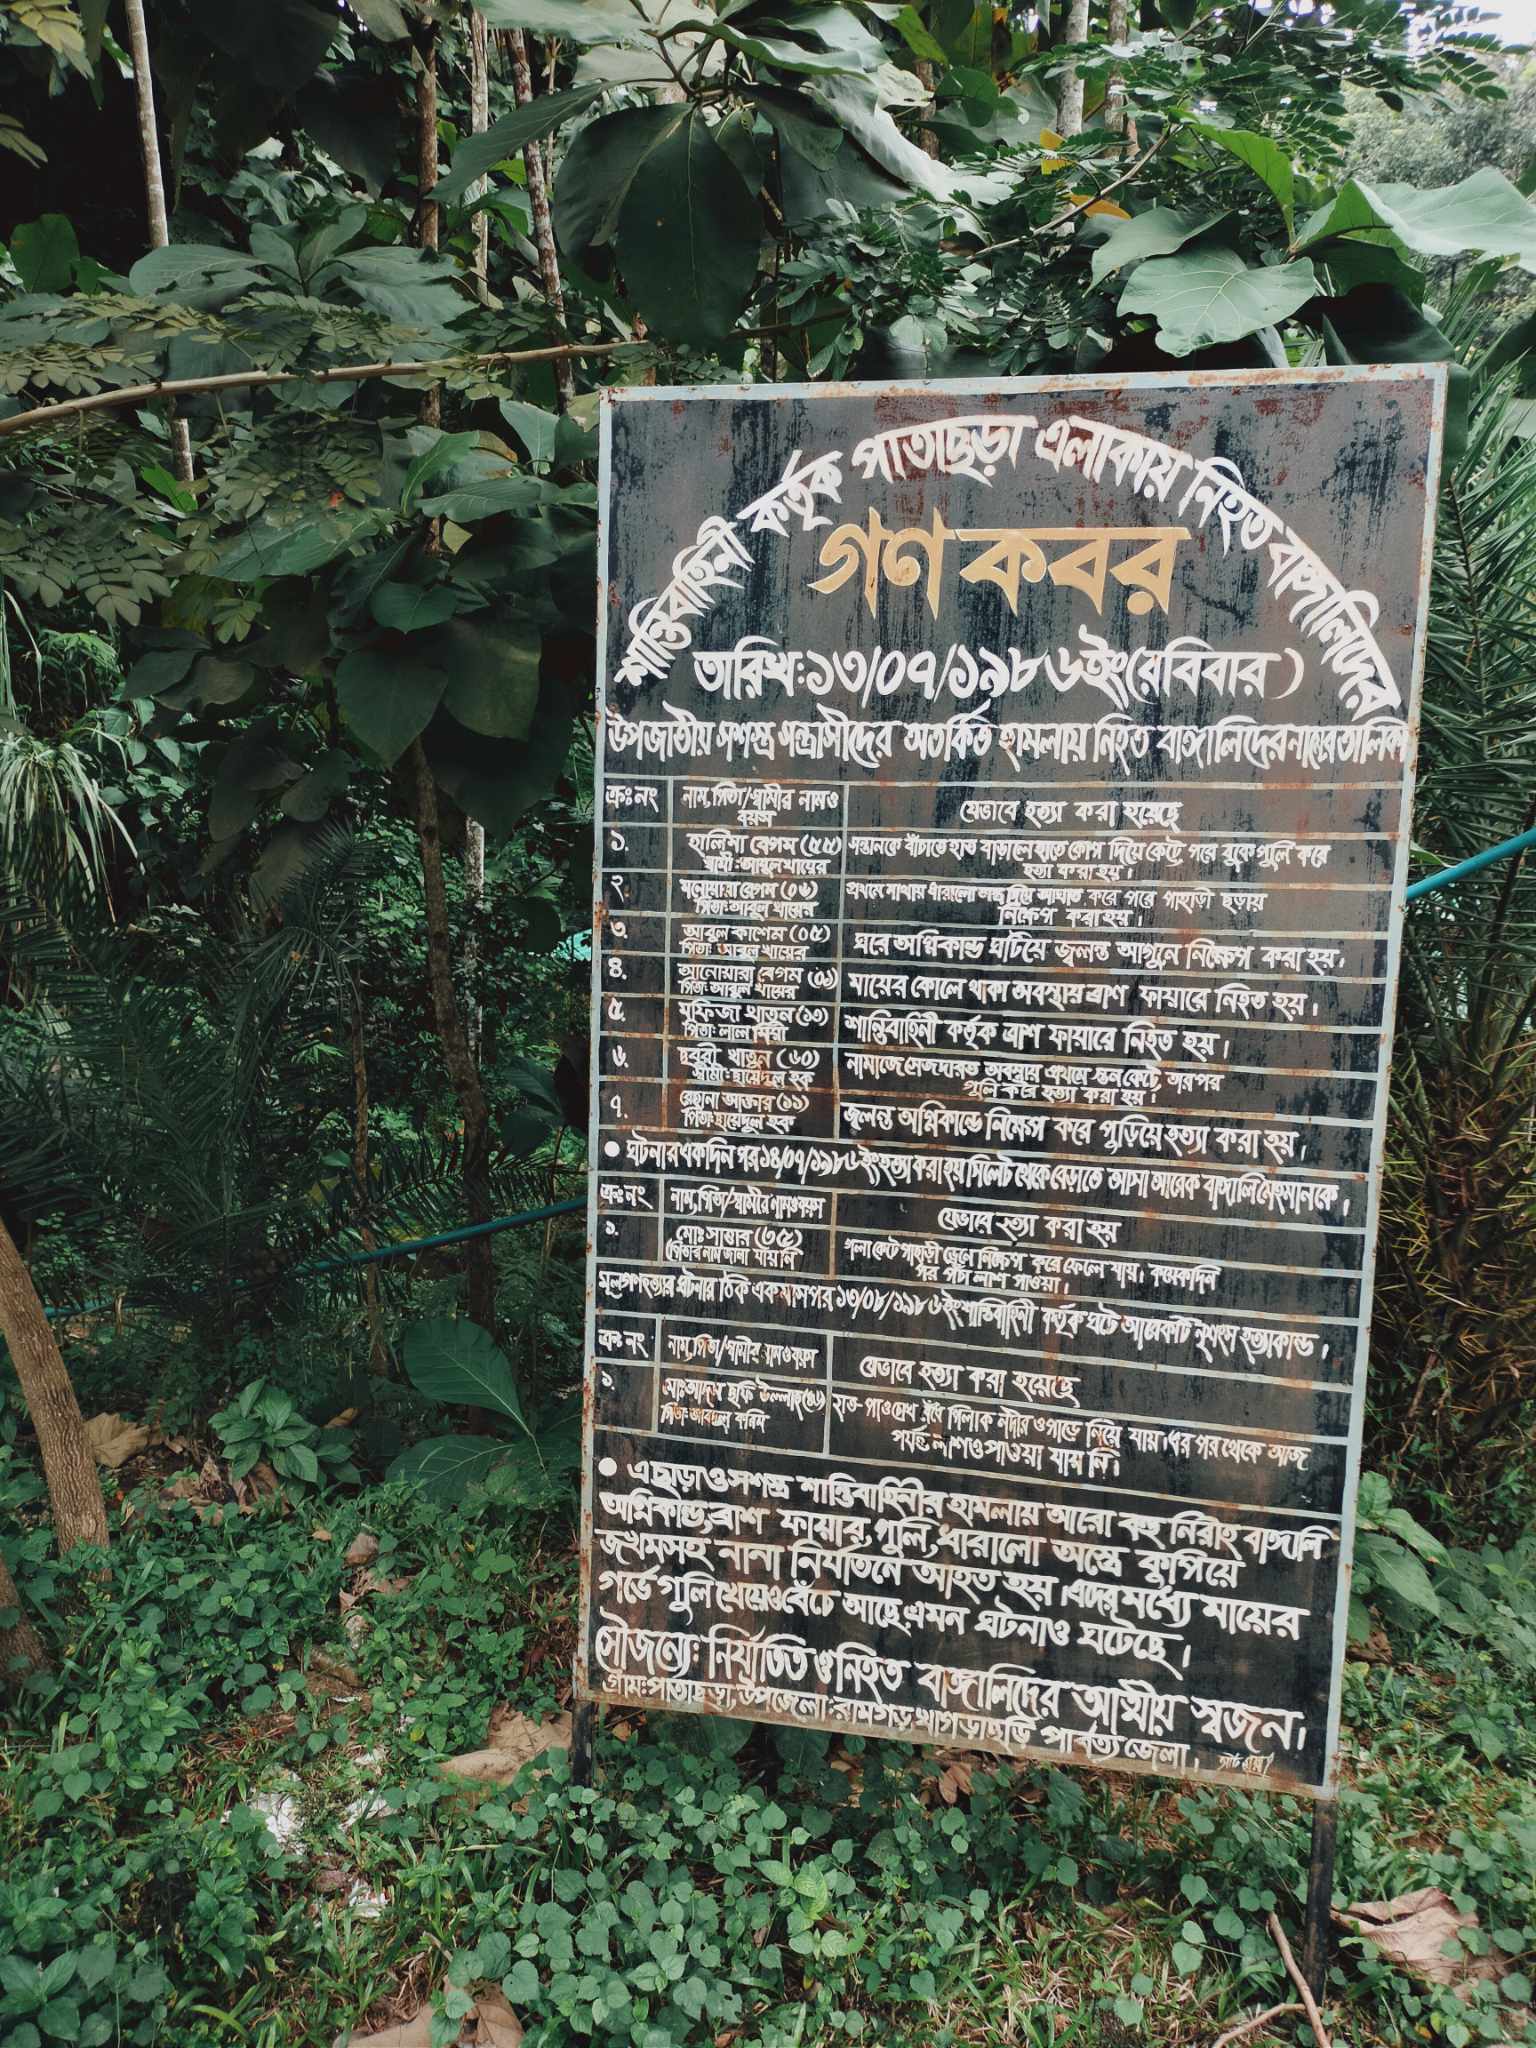 শান্তিবাহিনী কর্তৃক পাতাছড়া এলাকায় নিহত বাঙ্গালিদের
গণ কবর
তারিখ:১৩/০৭/১৯৮৬ইং(রবিবার)
উপজাতীয় সশস্ত্র সন্ত্রাসীদের অতর্কিত হামলায় নিহত বাঙ্গালিদের নামের তালিকা
ক্রঃনং নাম, পিতা/স্বামীর নাম ও বয়স যেভাবে হত্যা করা হয়েছে
১. হালিমা বেগম (৫৫) স্বামী: আবুল খায়ের সন্তানকে বাঁচাতে হাত বাড়ালে হাতে কোপ দিয়ে কেটে, পরে বুকে গুলি করে হত্যা করা হয়।
২. মনোয়ারা বেগম (০৬) পিতা: আবুল খায়ের প্রথমে মাথায় ধারালো অস্ত্র দিয়ে আঘাত করে পরে পাহাড়ী ছড়ায় নিক্ষেপ করা হয়।
৩. আবুল কাশেম (০৫) পিতা: আবুল খায়ের ঘরে অগ্নিকান্ড ঘটিয়ে জ্বলন্ত আগুনে নিক্ষেপ করা হয়।
৪. আনোয়ারা বেগম (০১) পিতা: আবুল খায়ের মায়ের কোলে থাকা অবস্থায় ব্রাশ ফায়ারে নিহত হয়।
৫. মফিজা খাতুন (১৩) পিতা: লাল মিয়া শান্তিবাহিনী কর্তৃক ব্রাশ ফায়ারে নিহত হয়।
৬. ছবুরী খাতুন (৬০) স্বামী: ছায়েদুল হক নামাজে সেজদারত অবস্থায় প্রথমে স্তন কেটে, তারপর গুলি করে হত্যা করা হয়।
৭. রেহানা আক্তার (১১) পিতা: ছায়েদুল হক জ্বলন্ত অগ্নিকান্ডে নিক্ষেপ করে পুড়িয়ে হত্যা করা হয়।
● ঘটনার একদিন পর ১৪/০৭/১৯৮৬ইং হত্যা করা হয় সিলেট থেকে বেড়াতে আসা আরেক বাঙ্গালি মেহমানকে।
ক্রঃ নং নাম, পিতা/স্বামীর নাম ও বয়স যেভাবে হত্যা করা হয়
১. মোঃ সাত্তার (৩৫) (পিতার নাম জানা যায় নি) গলা কেটে পাহাড়ী ড্রেনে নিক্ষেপ করে ফেলে যায়। কয়েকদিন পর পঁচা লাশ পাওয়া।
মূল গণহত্যার ঘটনার ঠিক এক মাস পর ১৩/০৮/১৯৮৬ইং শান্তিবাহিনী কর্তৃক ঘটে আরেকটি নৃশংস হত্যাকান্ড।
ক্রঃ নং নাম, পিতা/স্বামীর নাম ও বয়স যেভাবে হত্যা করা হয়েছে
১. মোঃ আদম ছফি উল্লাহ(২৬) পিতা: আবদুল করিম হাত-পাও চোখ বেঁধে পিলাক নদীর ওপাড়ে নিয়ে যায়। এর পর থেকে আজ পর্যন্ত লাশও পাওয়া যায় নি।
● এছাড়াও সশস্ত্র শান্তিবাহিনীর হামলায় আরো বহু নিরীহ বাঙ্গালি
অগ্নিকান্ড, ব্রাশ ফায়ার, গুলি, ধারালো অস্ত্রে কুপিয়ে
জখমসহ নানা নির্যাতনে আহত হয়। এদের মধ্যে মায়ের
গর্ভে গুলি খেয়েও বেঁচে আছে এমন ঘটনাও ঘটেছে।
সৌজন্যে: নির্যাতিত ও নিহত বাঙ্গালিদের আত্মীয় স্বজন।
গ্রাম: পাতাছড়া, উপজেলা: রামগড়, খাগড়াছড়ি পার্বত্য জেলা।